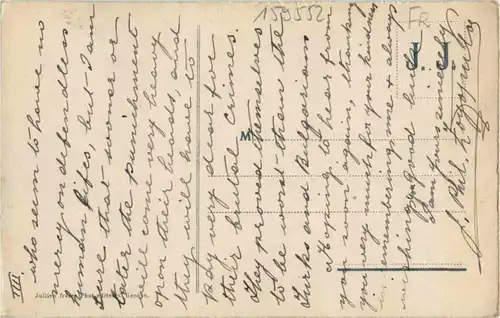 159552
FR
J. J
M
VIII.
who seem to have no
mercy on defendless
human lifes, but I am
sure that sooner or
later the punishment
will come very heavy
upon their heads, and
they will have to
pay very dear for
their brutal crimes.
They proved themselves
to be worst than the
Turks and Bulgarians
Hoping to hear from
you soon again, thanking
you very much for your kindness
in remembering me & always
wishing you good luck
I am yours sincerely
J. Paul
Jullien frères, Phot.-éditeurs, Genève.